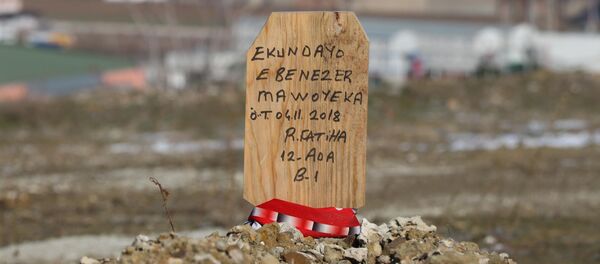 EKUNDAYO
EBENEZER
MAWOYEKA
Ö.T 04.11.2018
R. FATİHA
12-ADA
B-1